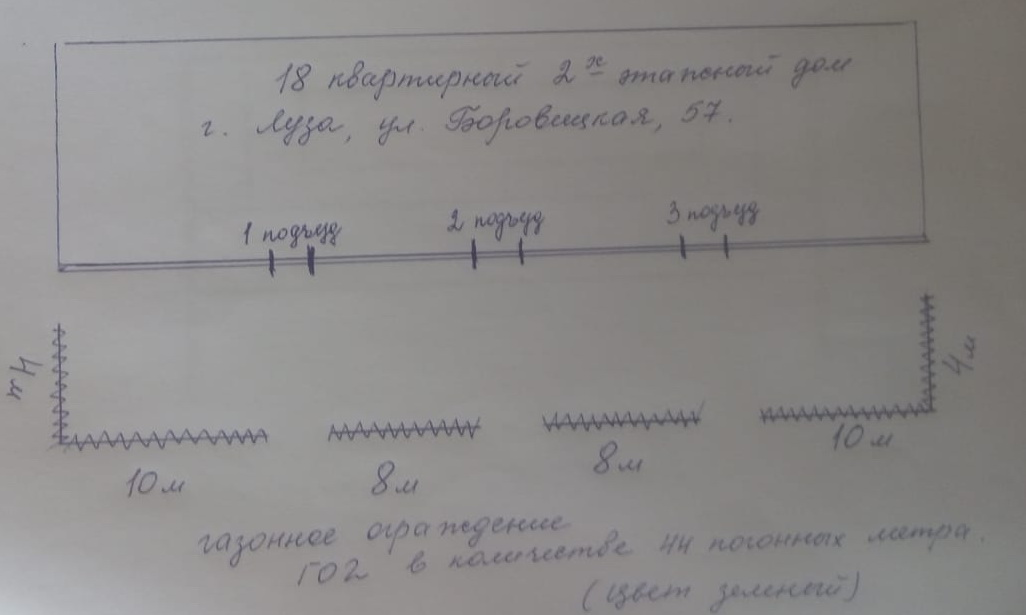 18 квартирный 2х этажный дом
г. Луза, ул. Боровицкая, 57.
1 подъезд
2 подъезд
3 подъезд
4м
4м
10 м
8м
8м
10 м
газонное ограждение
ГО2 в количестве 44 погонных метра.
(цвет зеленый)